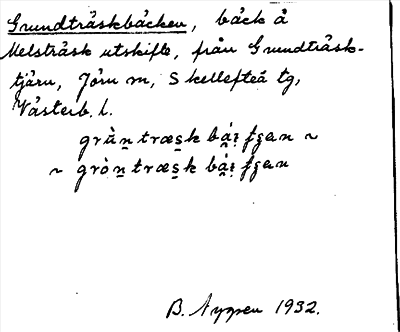 Grundträskbäcken, bäck å
Melsträsk utskifte, från Grundträsk-
tjärn, Jörn sn, Skellefteå tg,
Västerb. l.
grùn̠træs̠k bá̯i̯ fʒan ~
~ gròn̠træs̠k bá̯i̯ fʒan
1932.